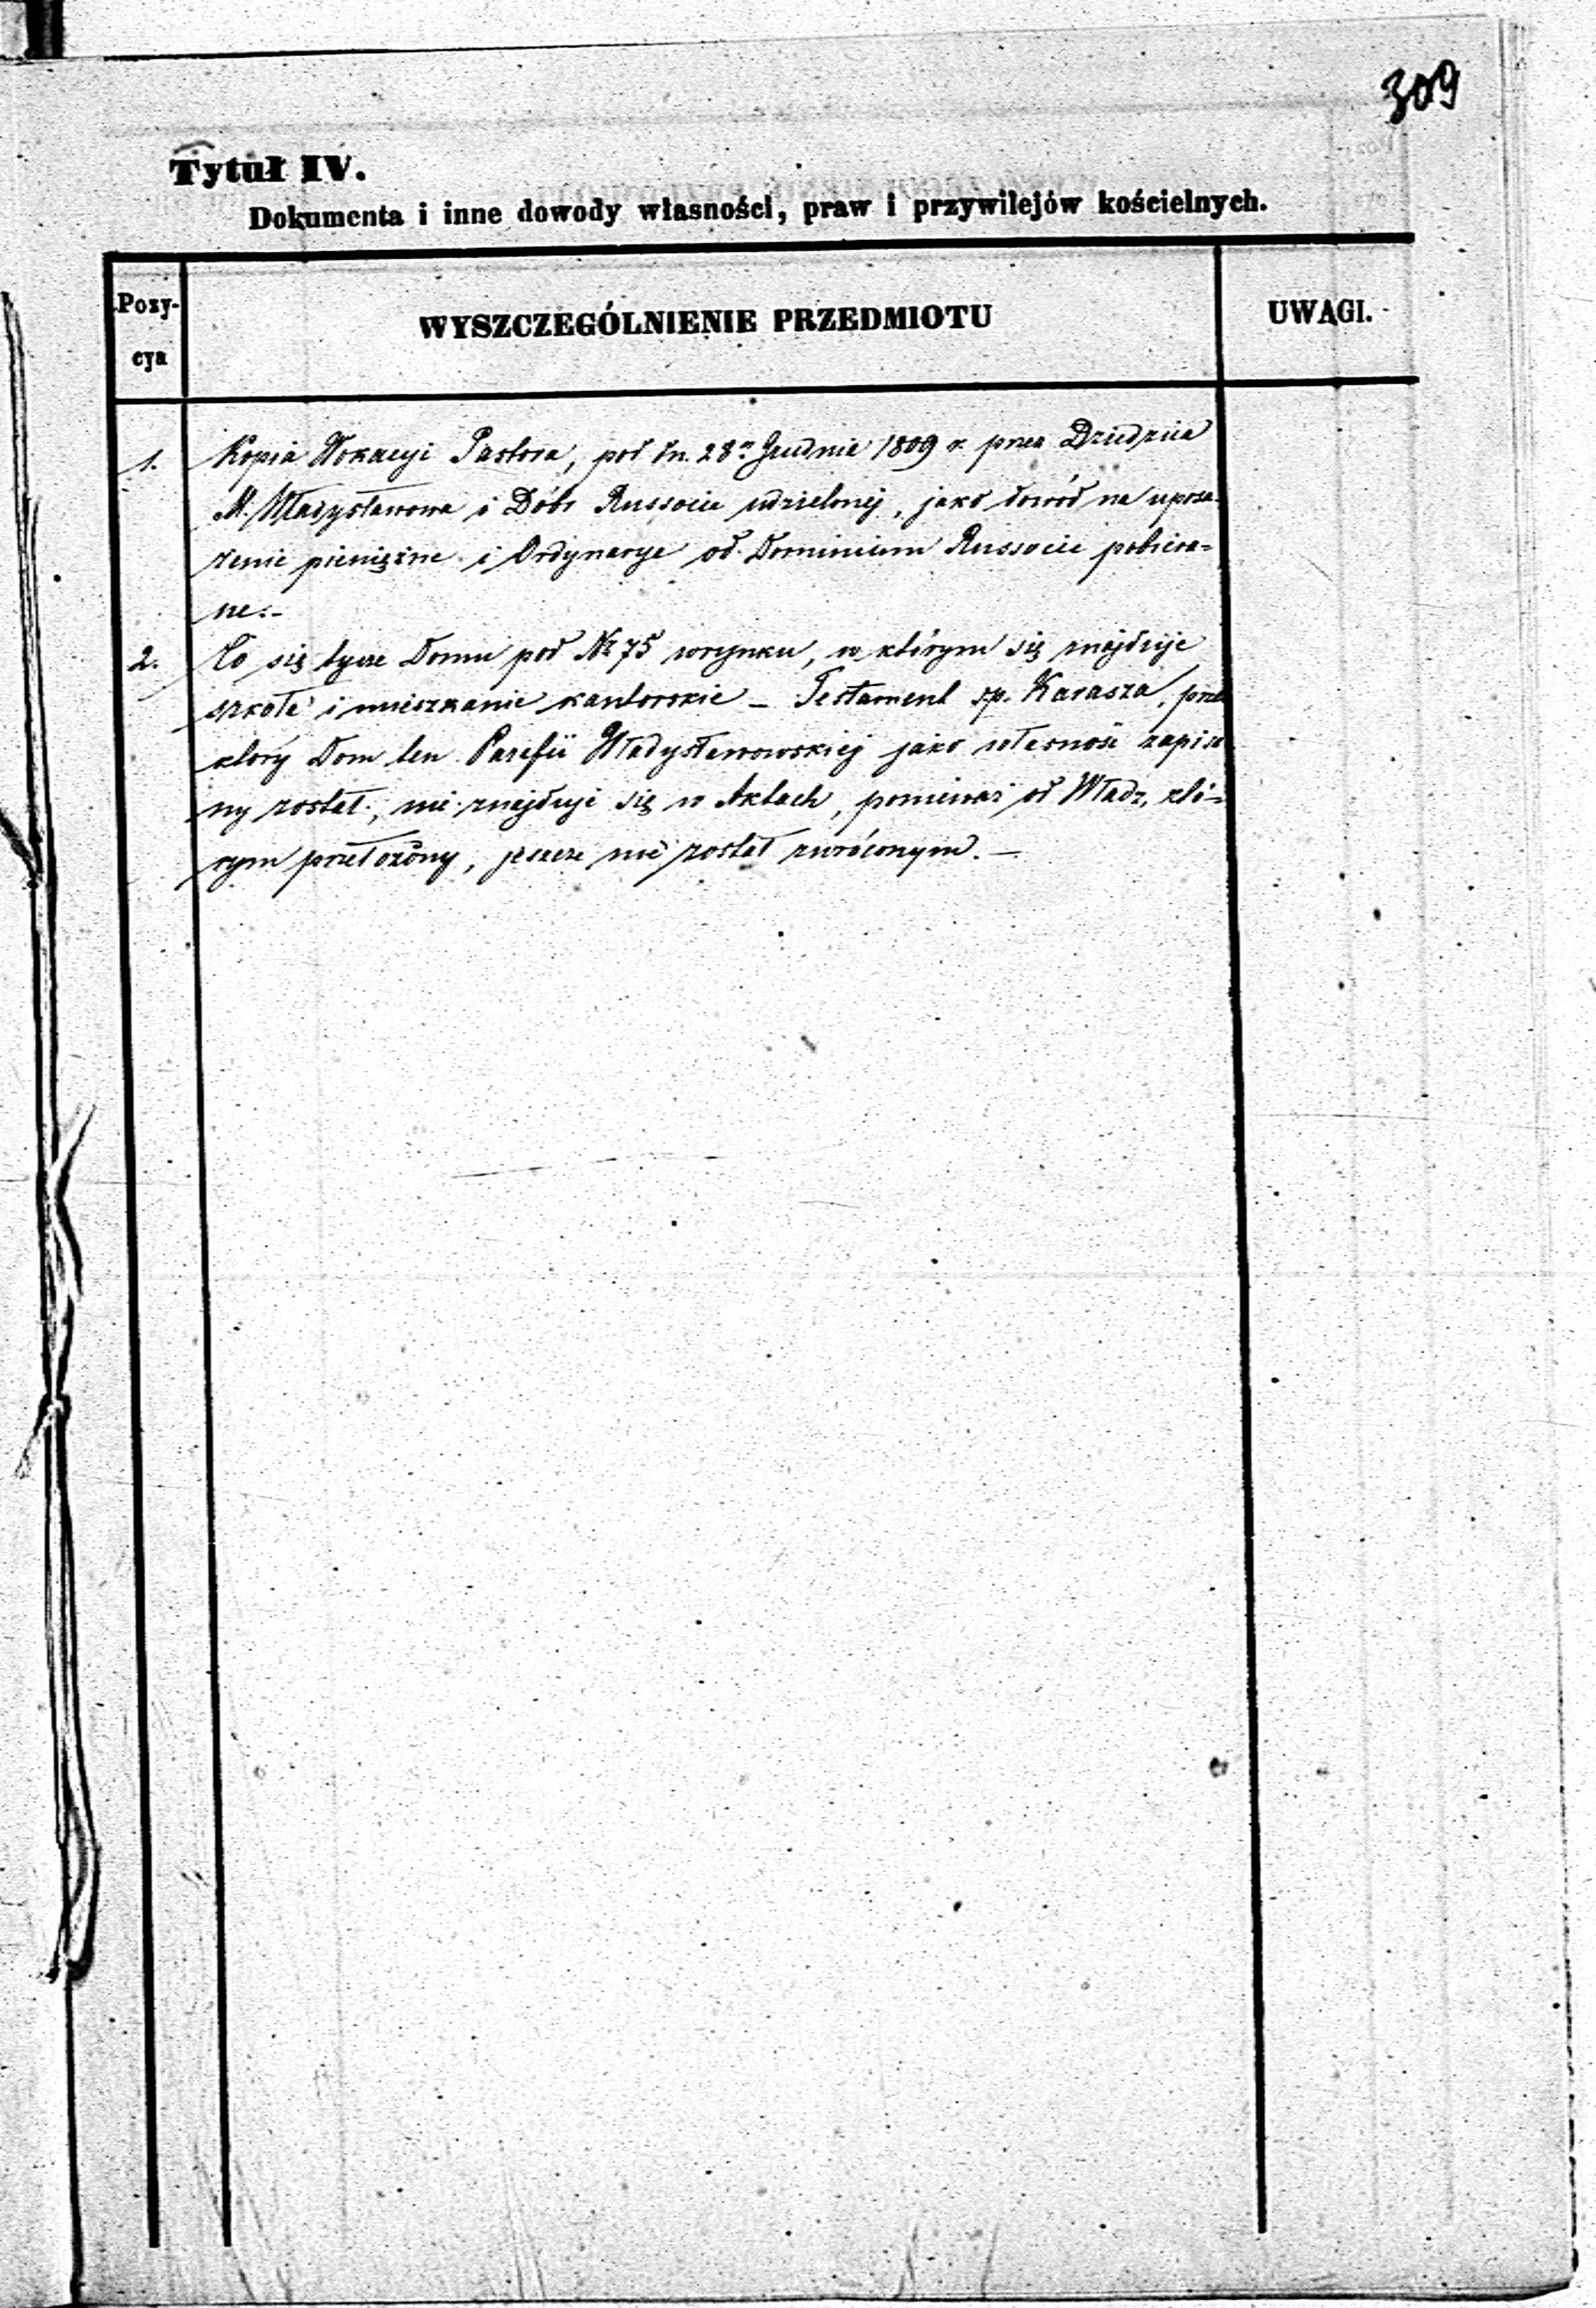 309
Tytuł IV.
Dokumenta i inne dowody własności, praw i przywilejów kościelnych.
Pozy-
cya
WYSZCZEGÓLNIENIE PRZEDMIOTU
UWAGI.
1. Kopia Wokacyi Pastora, pod dn. 28 Grudnia 1809 r. przez Dziedzica
M. Władysławowa i Dóbr Russocice udzielonej, jako dowód na uposa-
żenie pieniężne i Ordynarye od Dominium Russocice pobiera-
ne.-
2. Co się tycze Domu pod Nr 75 w rynku, w którym się znajduje
szkoła i mieszkanie kantorskie – Testament sp. Karasza, przez
który Dom ten Parafii Władysławowskiej jako własność zapisa
ny został, nie znajduje się w Aktach, ponieważ od Władz, któ-
rym przełożony, jeszcze nie został zwróconym. –